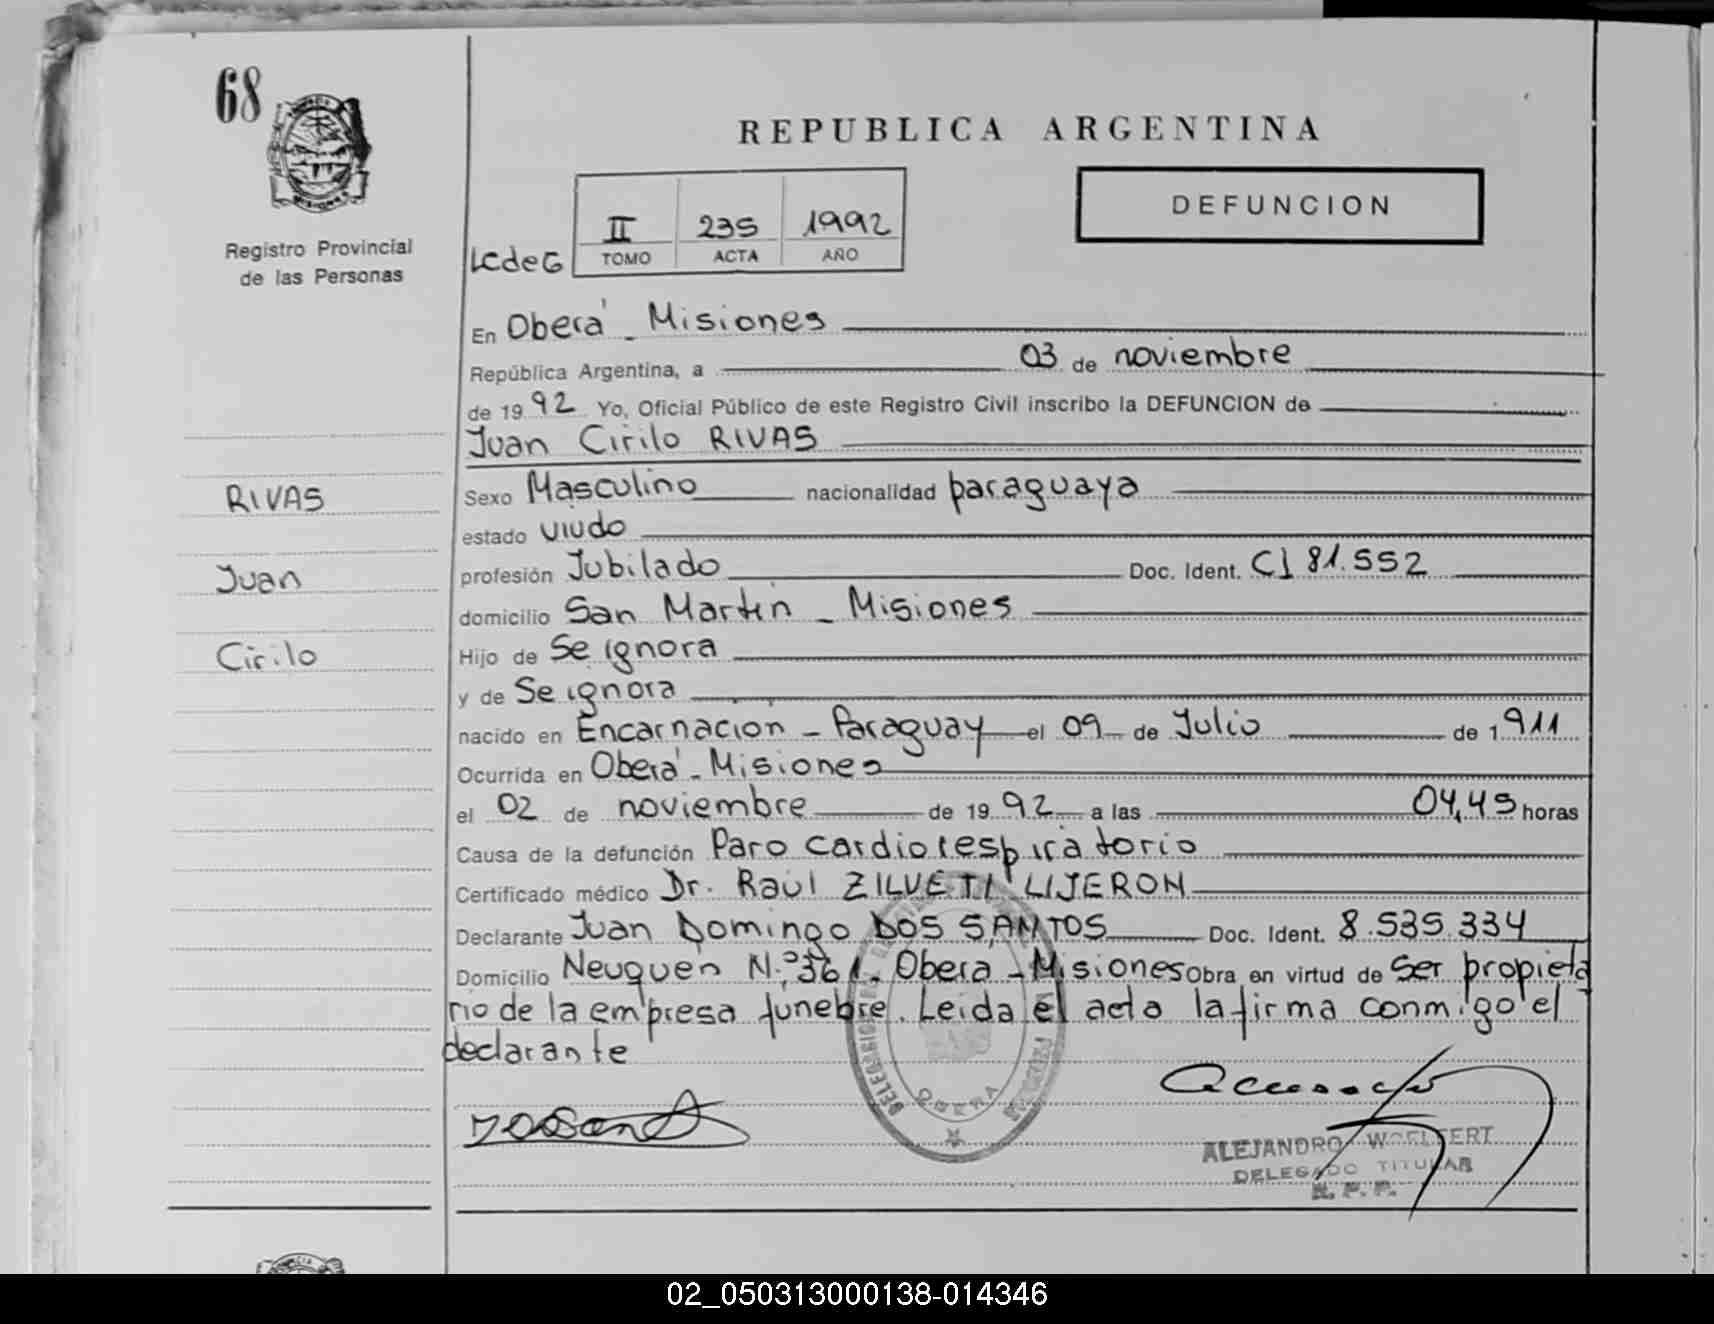 68
REPUBLICA ARGENTINA
DEFUNCION
Registro Provincial
de las Personas
LCdeG
II 235 1992
TOMO ACTA AÑO
En Oberá - Misiones
República Argentina, a 03 de noviembre
de 1992 Yo, Oficial Público de este Registro Civil inscribo la DEFUNCION de
Juan Cirilo RIVAS
RIVAS
Juan
Cirilo
Sexo Masculino nacionalidad paraguaya
estado viudo
profesión Jubilado Doc. Ident. CI 81.552
domicilio San Martín - Misiones
Hijo de Se ignora
y de Se ignora
nacido en Encarnación - Paraguay el 09 de Julio de 1911
Ocurrida en Oberá - Misiones
el 02 de noviembre de 1992 a las 04,45 horas
Causa de la defunción Paro cardiorespiratorio
Certificado médico Dr. Raúl ZILVETI LIJERON
Declarante Juan Domingo DOS SANTOS Doc. Ident. 8.535.334
Domicilio Neuquén N.º 361, Oberá - Misiones Obra en virtud de Ser propieta
rio de la empresa fúnebre. Leída el acta la firma conmigo el
declarante
OBERA
ALEJANDRO WOELFERT
DELEGADO TITULAR
R. P. P.
02_050313000138-014346